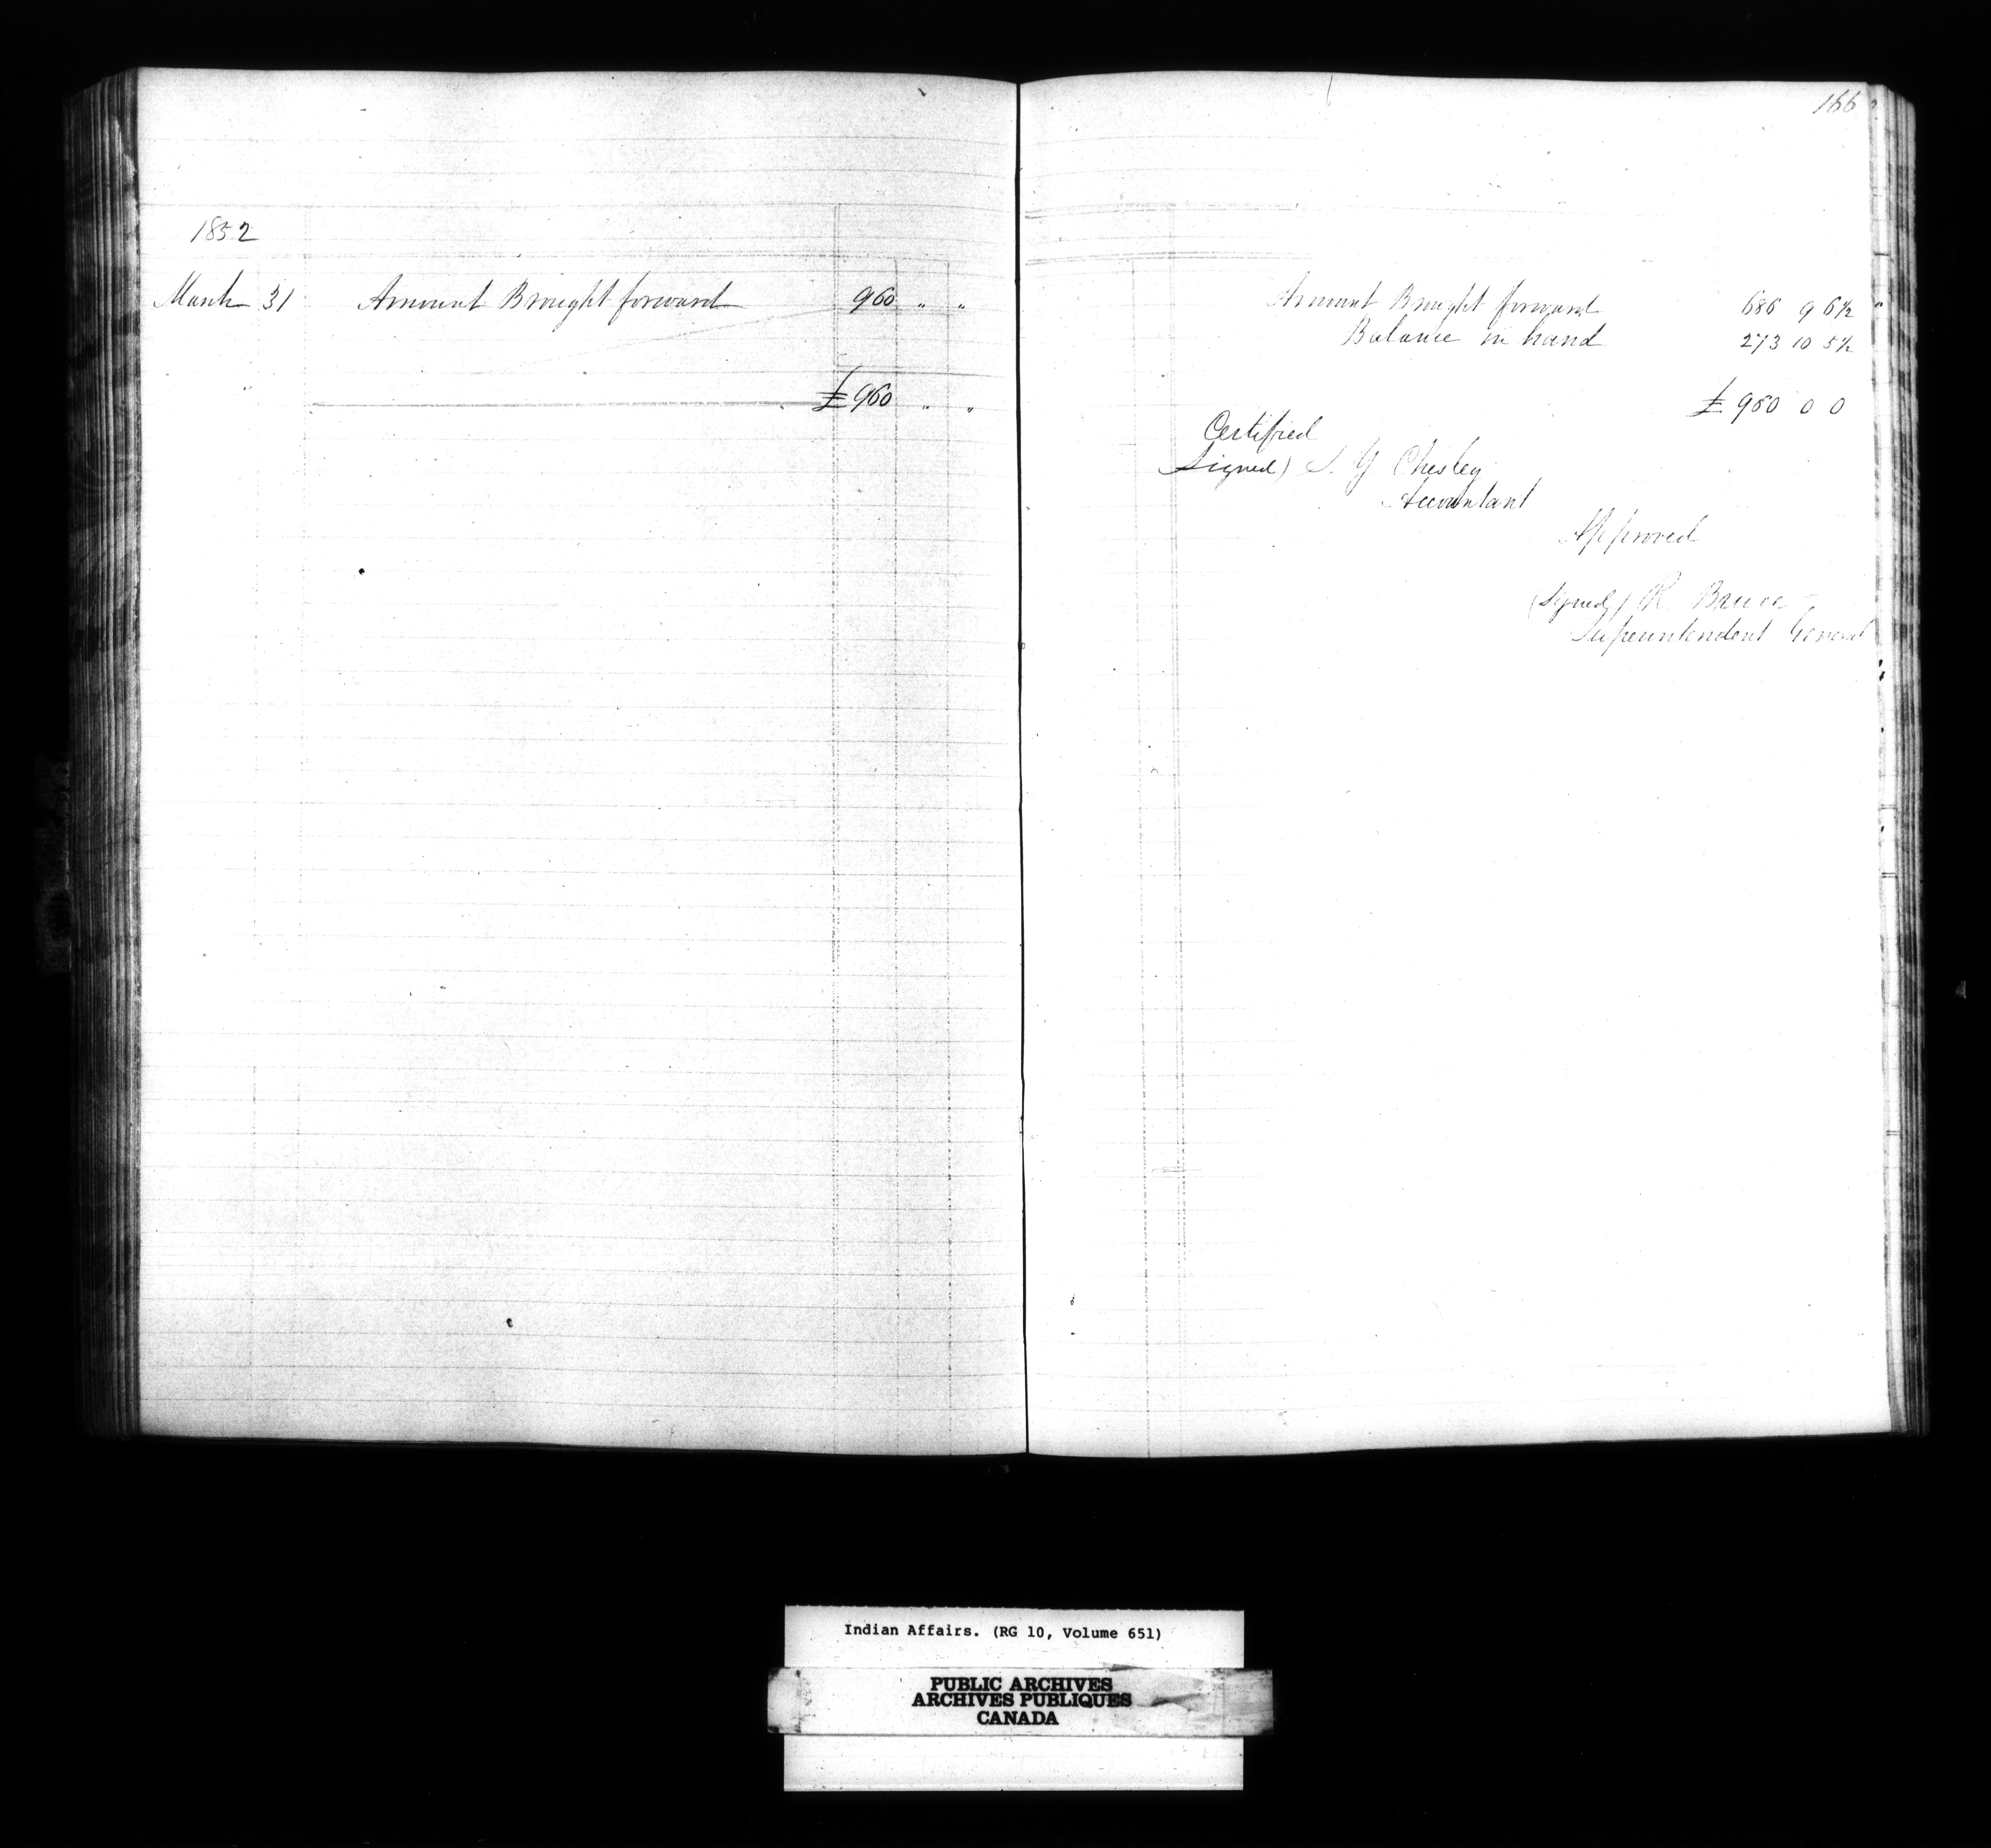 1852
March 31 Amount Brought forward 960 " "
£ 960 " "
166
Amount Brought forward 686 9 6½
Balance in hand 273 10 5½
£ 960 0 0
Certified
Signed) S. Y Chesley
Accountant
Approved
(Signed) R Bruce
Superintendent General
Indian Affairs. (RG 10, Volume 651)
PUBLIC ARCHIVES
ARCHIVES PUBLIQUES
CANADA